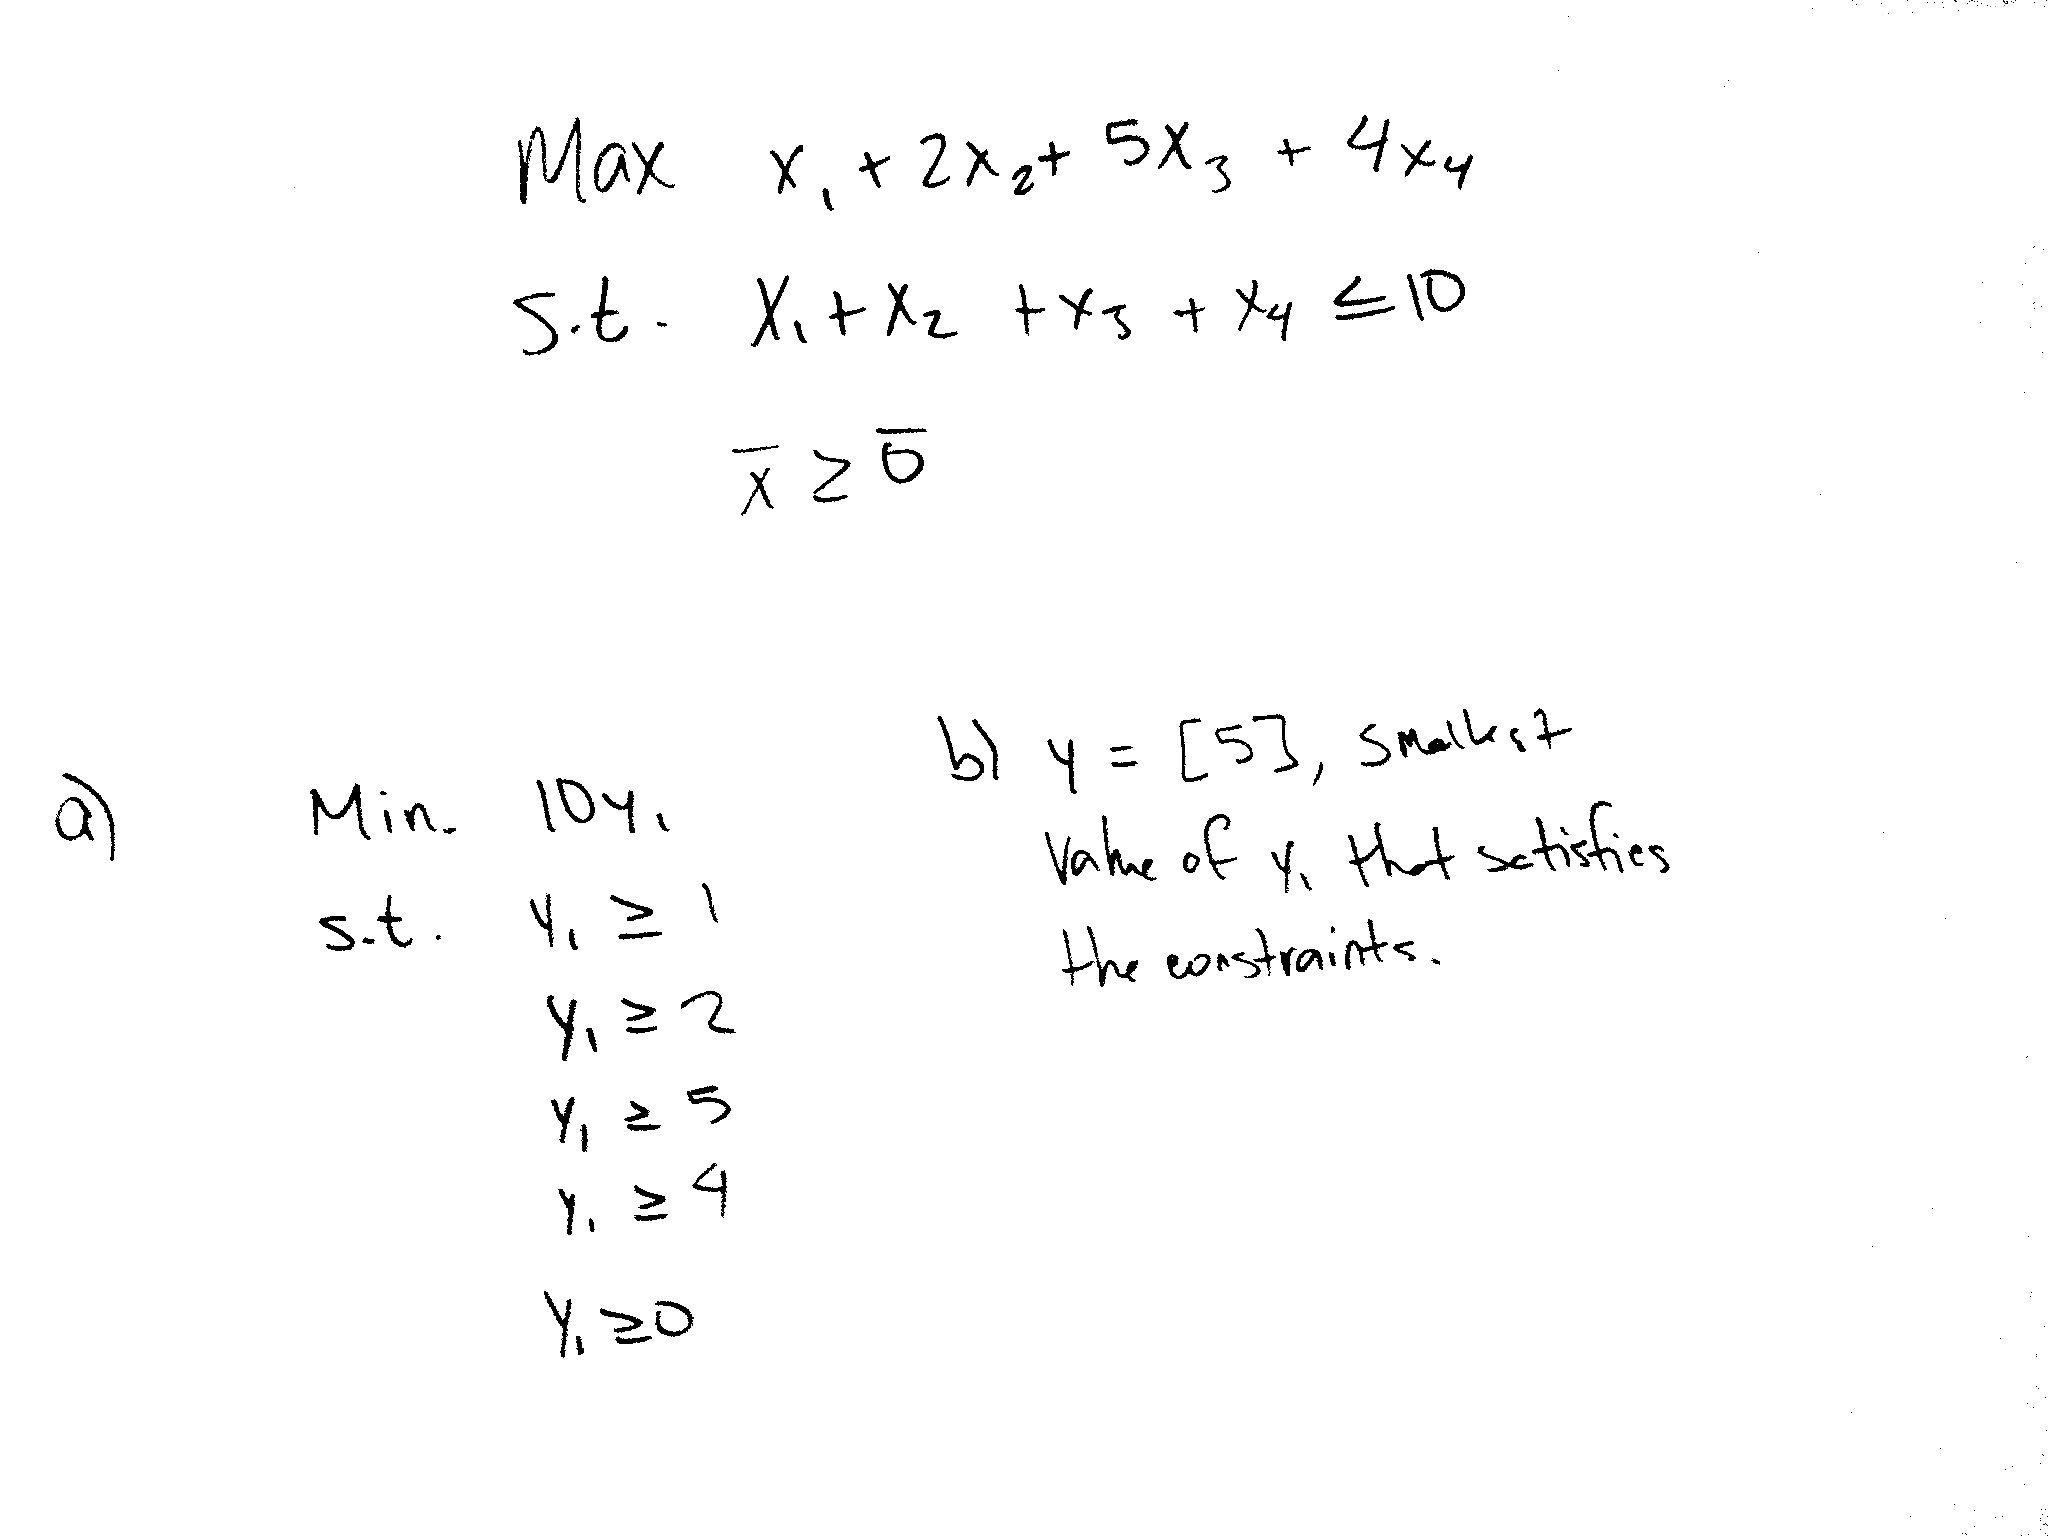 Max x₁ + 2x₂ + 5x₃ + 4x₄
s.t. x₁ + x₂ + x₃ + x₄ ≤ 10
x̄ ≥ 0̄
a) Min. 10y₁
s.t. y₁ ≥ 1
y₁ ≥ 2
y₁ ≥ 5
y₁ ≥ 4
y₁ ≥ 0
b) y = [5], smallest
value of y₁ that satisfies
the constraints.